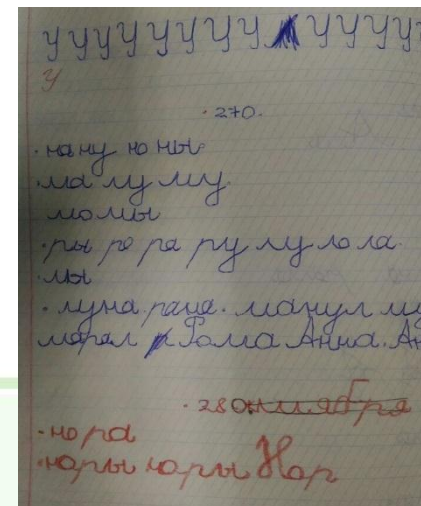 у у у у у у у у у у у у у
у
· 270.
· на ну но ны
· ма лу му.
мо мы
· ры ро ра ру лу ло ла.
· лы
· луна. рана. манул
марал Рома Анна.
· 28
· нора
· нары нары Нар